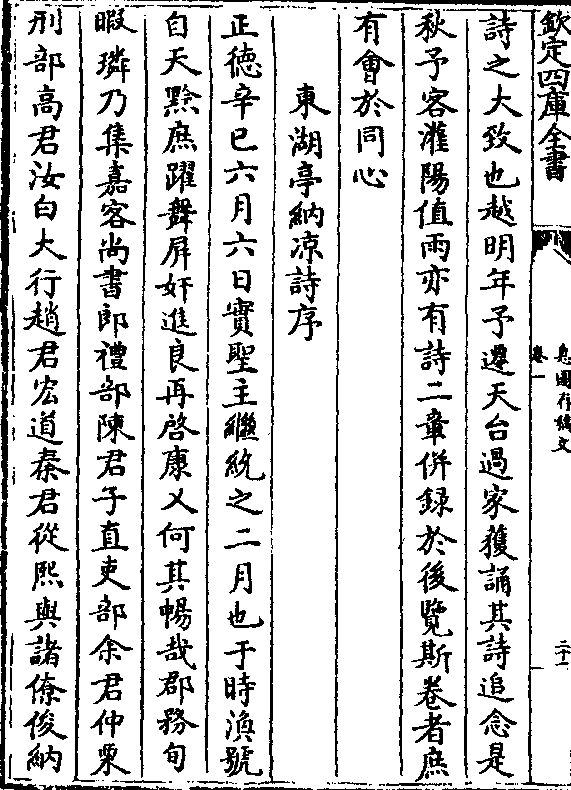 欽定四庫全書
息園存稿文
卷一
二十二
詩之大致也越明年予遷天台過家獲誦其詩追念是
秋予客濰陽值雨亦有詩二章併録於後覽斯卷者庶
有會於同心
東湖亭納凉詩序
正徳辛巳六月六日實聖主繼統之二月也于時渙號
自天黔庶躍舞屏奸進良再啓康乂何其暢哉郡務旬
暇璘乃集嘉客尚書郎禮部陳君子直吏部余君仲栗
刑部高君汝白大行趙君宏道秦君從熙與諸僚俊納